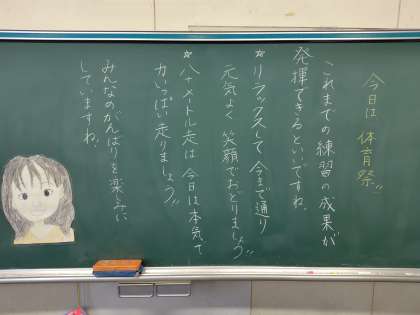 今日は 体育祭!!
これまでの練習の成果が
発揮できるといいですね。
☆リラックスして今まで通り
元気よく 笑顔でおどりましょう!!
☆八十メートル走は 今日は本気で
力いっぱい走りましょう!!
みんなのがんばりを楽しみに
していますね。